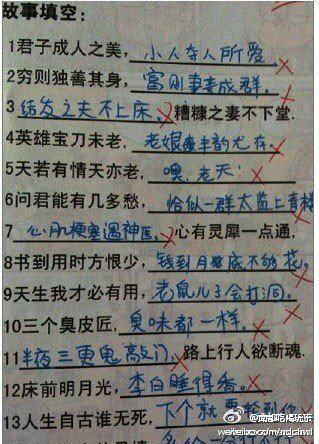 故事填空:
1君子成人之美,小人夺人所爱。
2穷则独善其身,富则妻妾成群。
3结发之夫不上床,糟糠之妻不下堂.
4英雄宝刀未老,老娘风韵尤存.
5天若有情天亦老,噢,老天!
6问君能有几多愁,恰似一群太监上青楼
7心肌梗塞遇神医,心有灵犀一点通,
8书到用时方恨少,钱到月底不够花。
9天生我才必有用,老鼠儿子会打洞。
10三个臭皮匠,臭味都一样。
11半夜三更鬼敲门,路上行人欲断魂.
12床前明月光,李白睡得香。
13人生自古谁无死,下个就
@南都吃喝玩乐
weibo.com/ndchwl